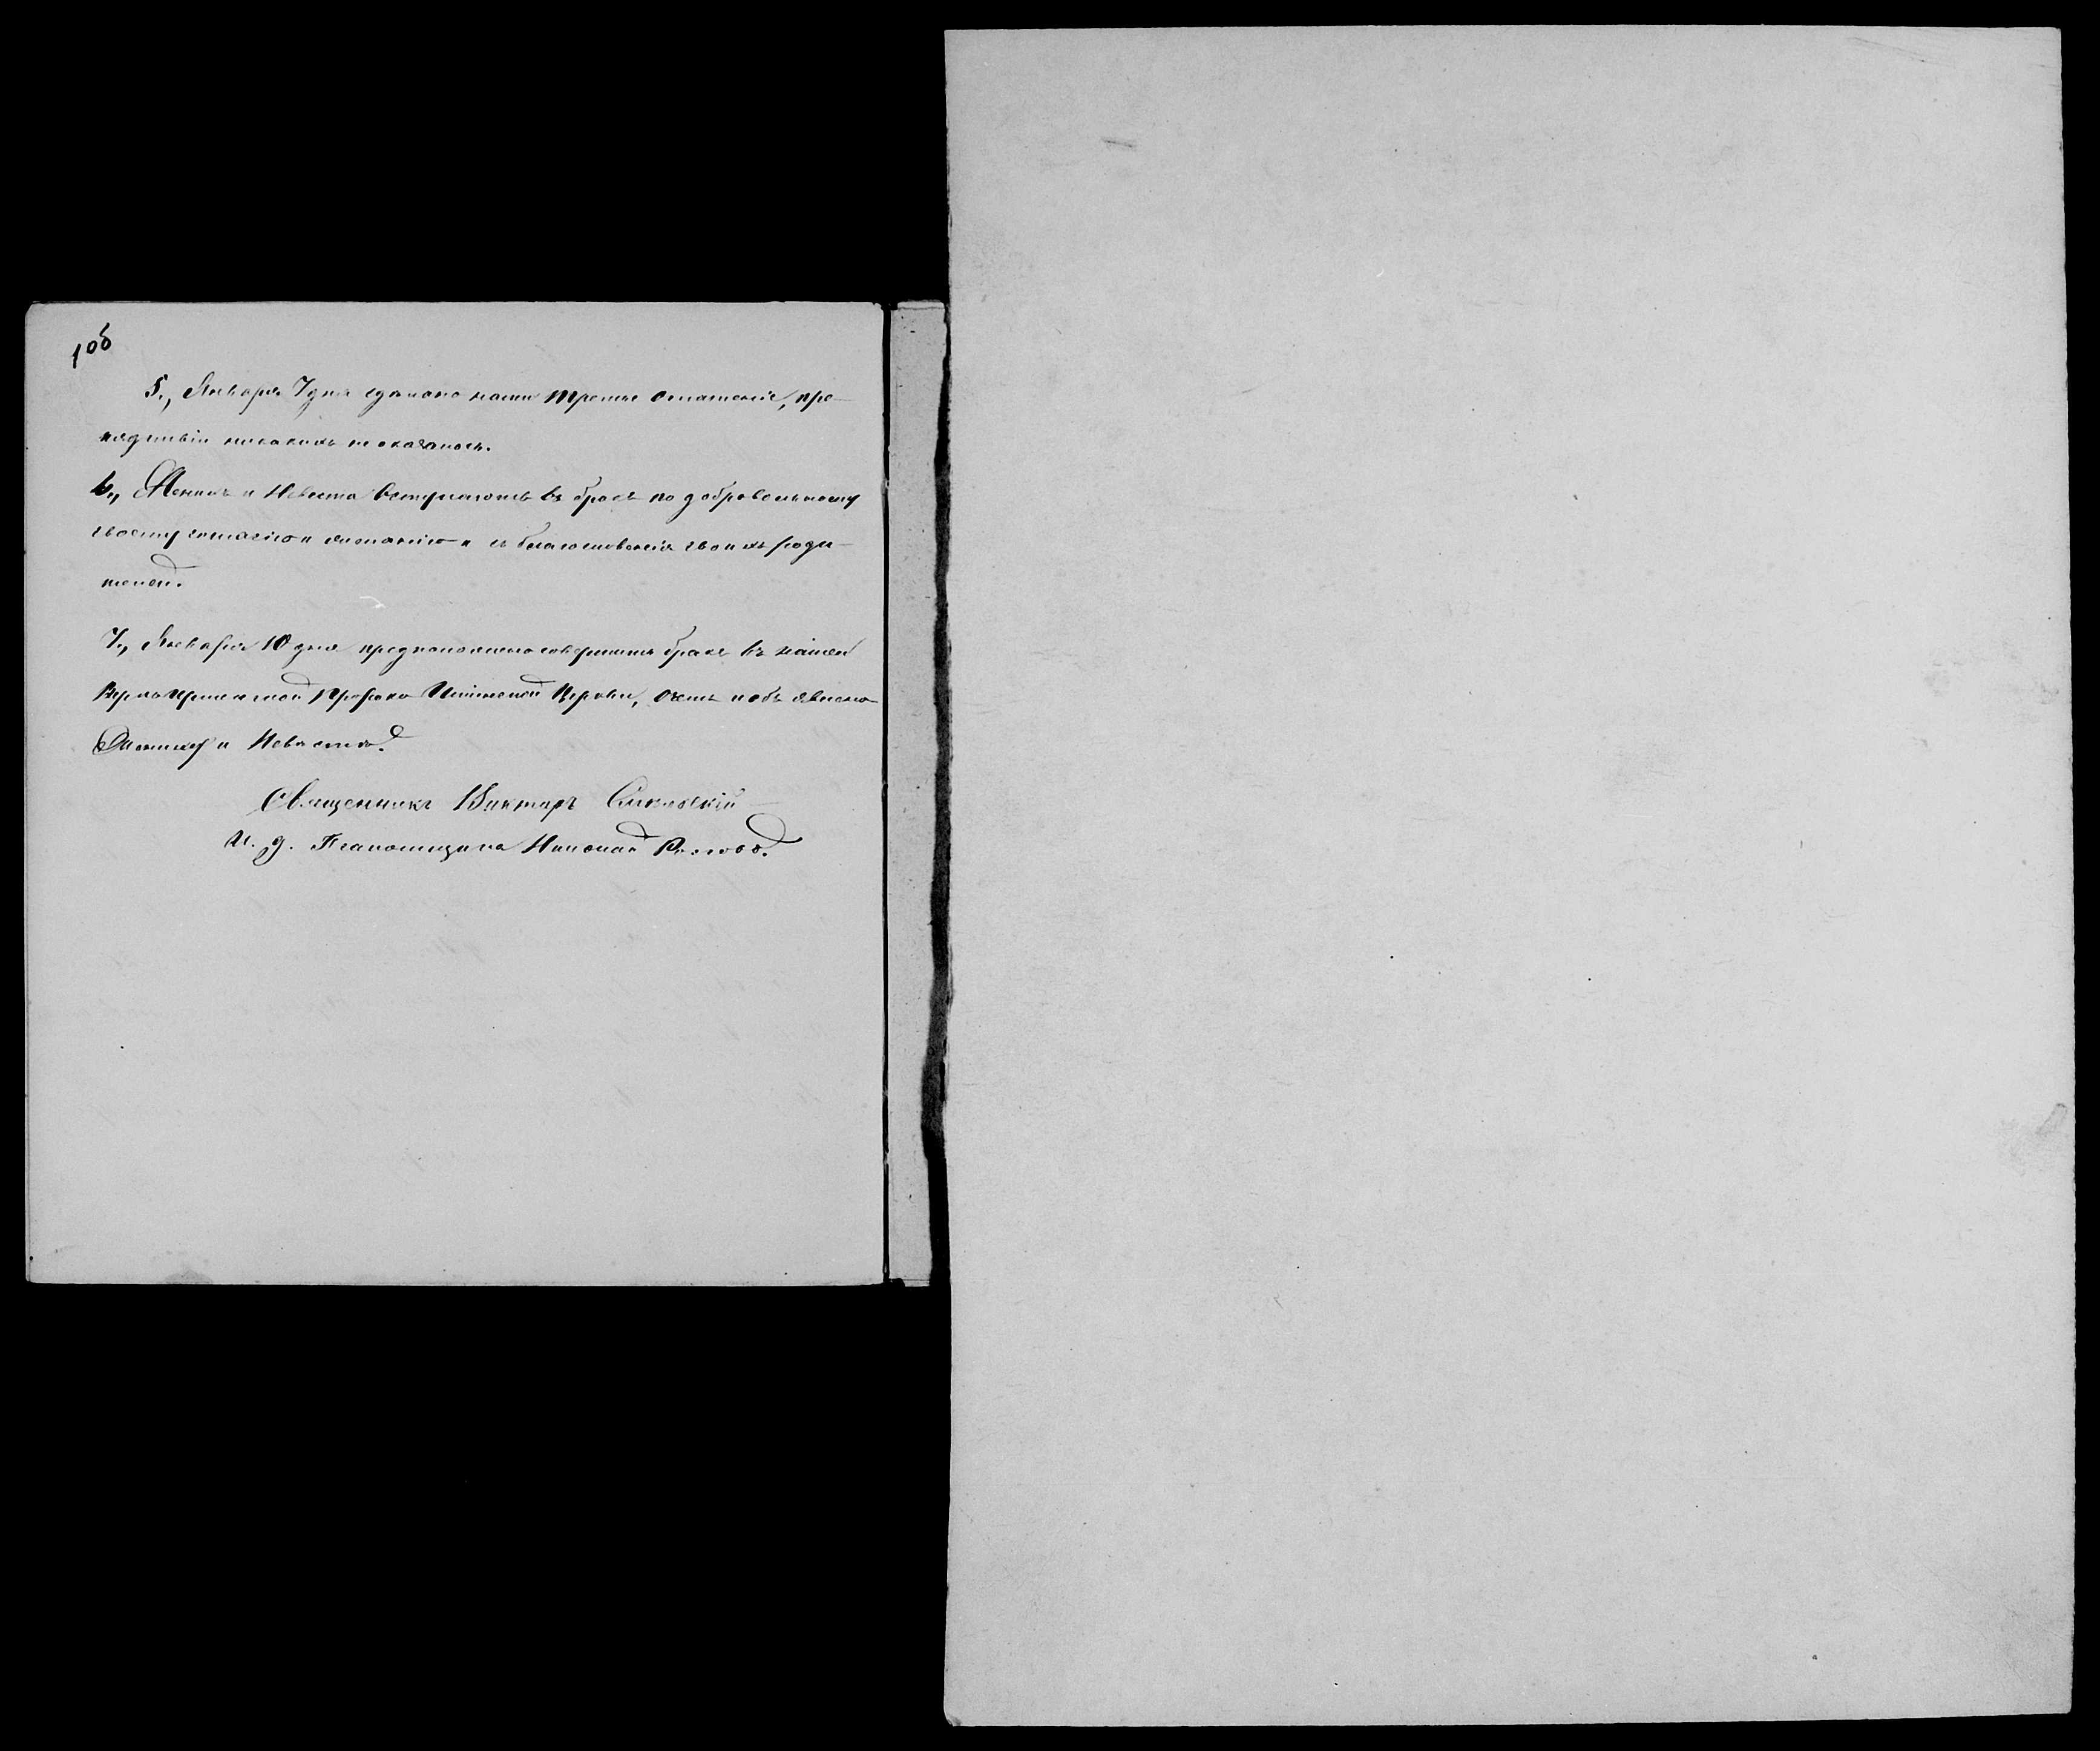 1об
5., Января 7 дня сделано нами третье оглашеніе, пре-
пядствіи никакихъ не оказалось.
6., Женихъ и Невеста вступаютъ въ бракъ по добровольному
своему согласію и желанію и съ благословенія своихъ роди-
телей.
7., Января 10 дня предположено совершить бракъ въ нашей
Пророко Ильинской Церкви, о чемъ и объявлено
Жениху и Невѣстѣ.
Священникъ Викторъ
И. д. Псаломщика Николай